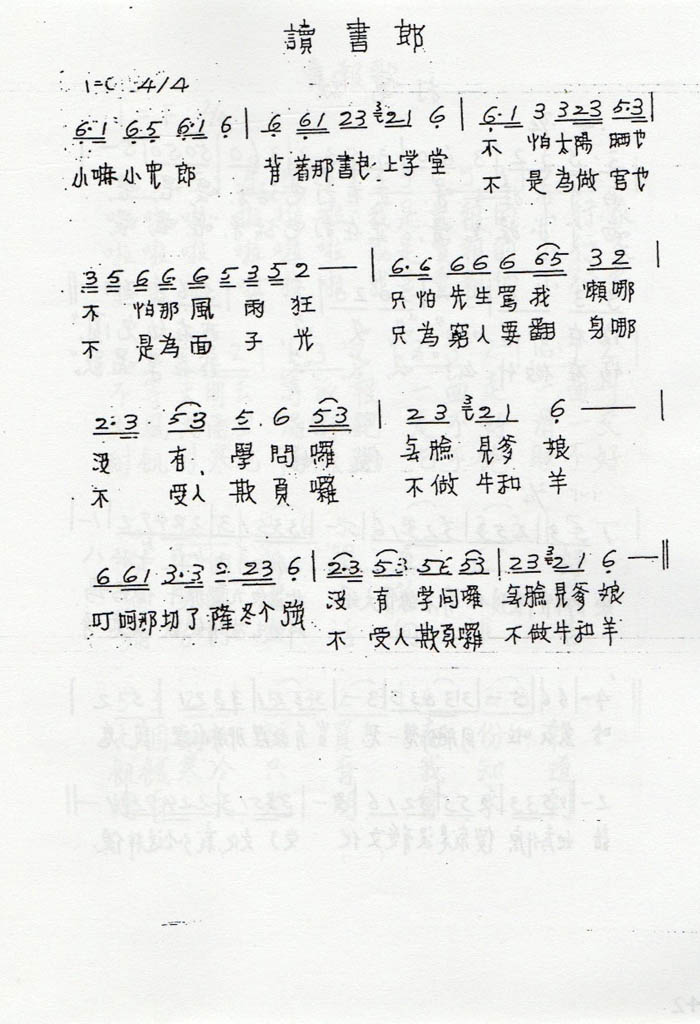 讀書郎
1=C 4/4
6·1 6·5 6·1 6 | 6 61 23 3 21 6 | 6·1 3 323 53 |
小嘛小兒郎 背着那書包上学堂 不怕太陽晒也
不是為做官也
3 5 6 6 6 5 3 5 2 — — | 6·6 6 6 6 65 3 2 |
不怕那風雨狂 只怕先生罵我懶哪
不是為面子光 只為窮人要翻身哪
2·3 5·3 5 6 5·3 | 2 3 3 2 1 6 — — |
没有學問囉 無臉見爹娘
不受人欺負囉 不做牛和羊
6 61 3·3 2 23 6 | 2·3 5·3 5 6 53 | 23 3 21 6 — ‖
叮呵那切了隆冬个強 没有学问囉 無臉見爹娘
不受人欺負囉 不做牛和羊